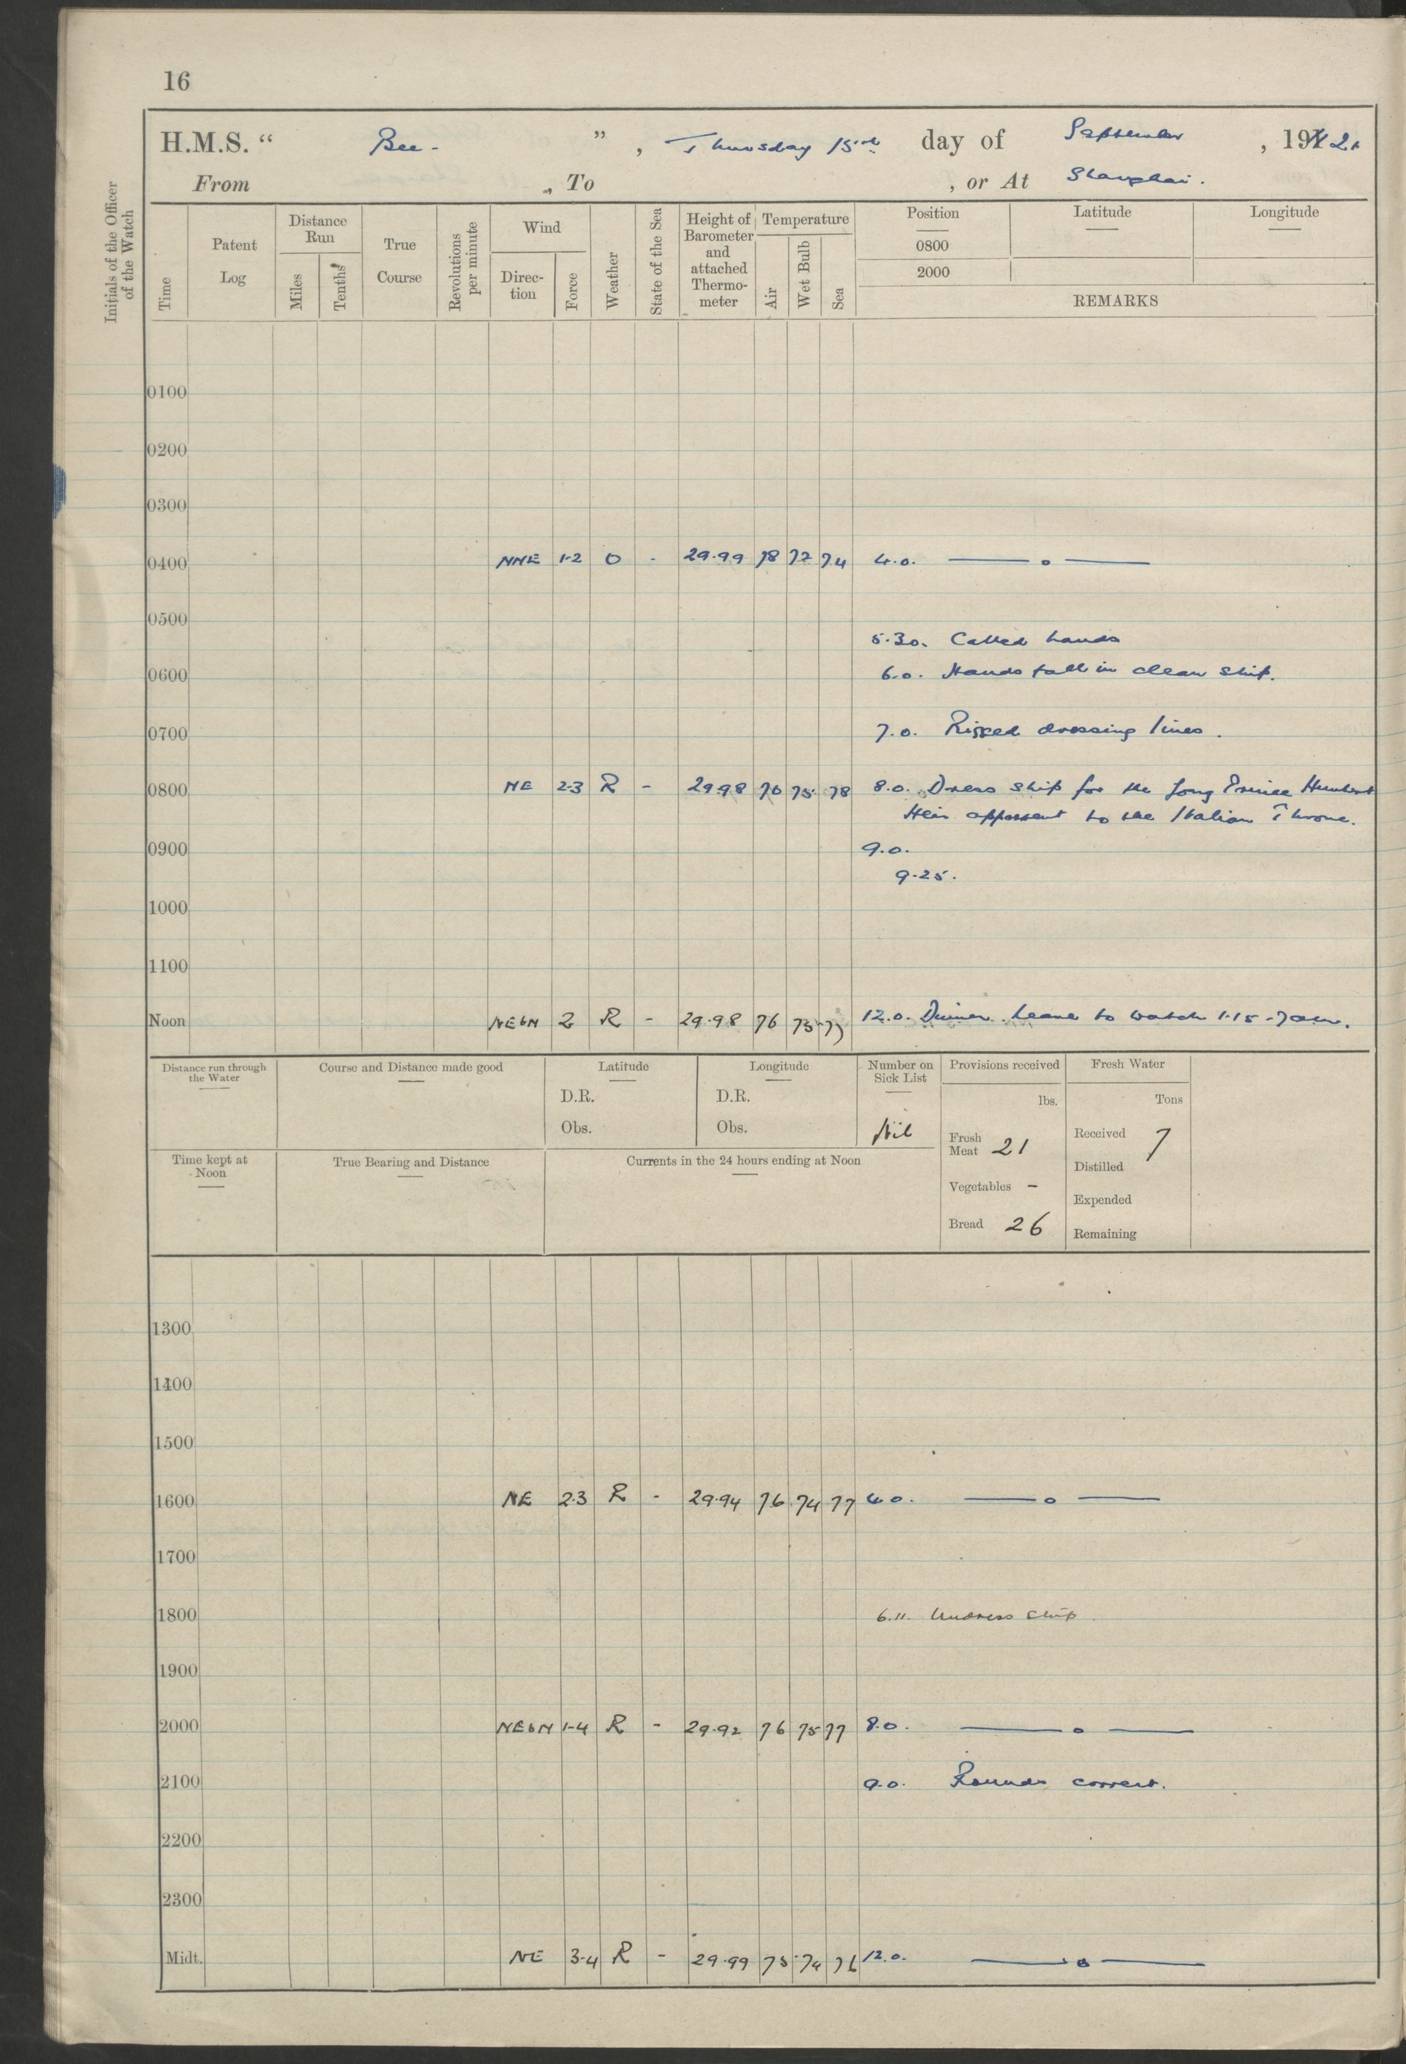 16
H.M.S. “ Bee - ”, Thursday 15th day of September, 1921
From , To , or At Shanghai.
Initials of the Officer of the Watch
Time
Patent Log
Distance Run
Miles
Tenths
True Course
Revolutions per minute
Wind
Direc-tion
Force
Weather
State of the Sea
Height of Barometer and attached Thermo-meter
Temperature
Air
Wet Bulb
Sea
Position Latitude Longitude
0800
2000
REMARKS
0100
0200
0300
0400 NNE 1-2 O - 29.99 78 77 74 4.0. —— o ——
0500
5.30. Called hands
0600 6.0. Hands fall in clean ship.
0700 7.0. Rigged dressing lines.
0800 NE 2-3 R - 29.98 76 75 78 8.0. Dress ship for the Prince Humbert
Heir apparent to the Italian Throne.
0900 9.0.
9.25.
1000
1100
Noon NEbN 2 R - 29.98 76 75 77 12.0. Dinner. Leave to watch 1.15 - 7am.
Distance run through the Water
Course and Distance made good
Latitude
D.R.
Obs.
Longitude
D.R.
Obs.
Number on Sick List
Nil
Provisions received
lbs.
Fresh Meat 21
Vegetables -
Bread 26
Fresh Water
Tons
Received 7
Distilled
Expended
Remaining
Time kept at Noon
True Bearing and Distance
Currents in the 24 hours ending at Noon
1300
1400
1500
1600 NE 2-3 R - 29.94 76 74 77 4.0. —— o ——
1700
1800 6.11. Undress ship
1900
2000 NEbN 1-4 R - 29.92 76 75 77 8.0. —— o ——
2100 9.0. Rounds correct.
2200
2300
Midt. NE 3-4 R - 29.99 75 74 76 12.0. —— o ——